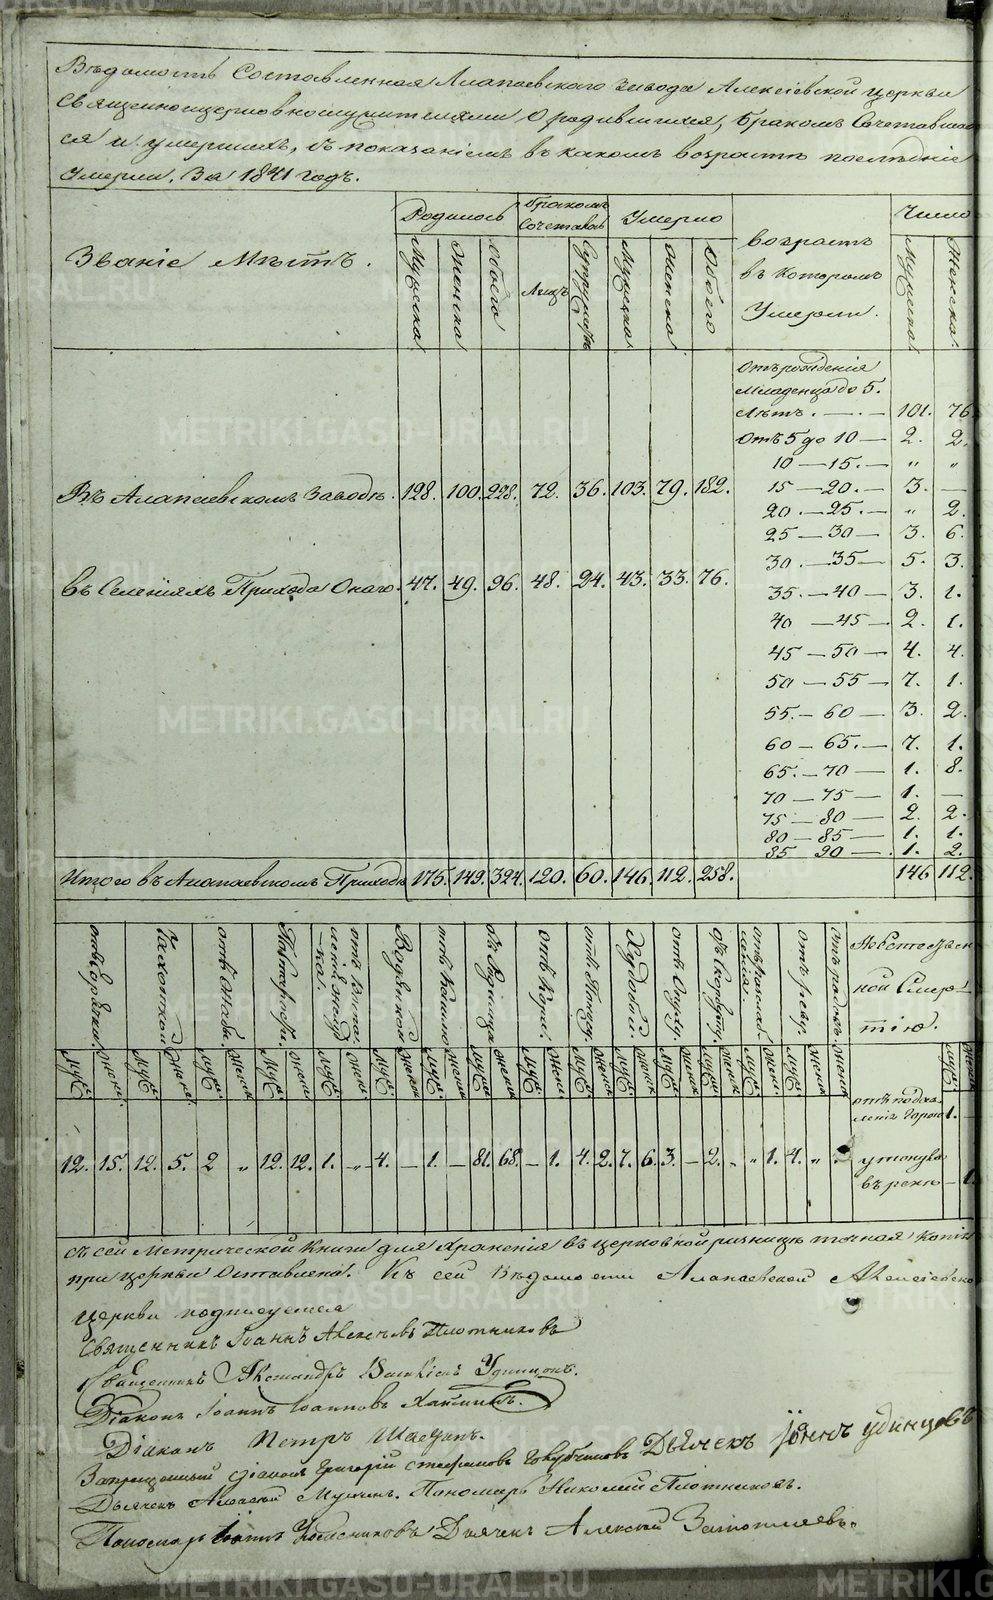 Вѣдомость Составленная Алапаевскаго Завода Алексіевской церкви
Священноцерковнослужителями О родившихся, бракомъ Сочетавших
ся и умершихъ, съ показаніемъ въ какомъ возрастѣ послѣдніе
Умерли. За 1841 годъ.
Званіе Мѣстъ.
Родилось
Бракомъ Сочеталось
Умерло
возрастъ въ которомъ Умерли.
Число
Мужеска
Женска
Обоего
Лицъ
Супружествъ
Мужеска
Женска
Обоего
Мужеска
Женска
Отъ рожденія
Младенца до 5.
Лѣтъ. — 101. 76
Отъ 5 до 10 — 2. 2.
10 — 15. — „ „
Въ Алапаевскомъ Заводѣ. 128. 100. 228. 72. 36. 103. 79. 182.
15 — 20. — 3. —
20. — 25. — „ 2.
25 — 30 — 3. 6.
30. — 35 — 5. 3.
въ Селеніяхъ Прихода Онаго. 47. 49. 96. 48. 24. 43. 33. 76.
35. — 40 — 3. 1.
40 — 45 — 2. 1.
45 — 50 — 4. 4.
50 — 55 — 7. 1.
55. — 60 — 3. 2.
60 — 65. — 7. 1.
65. — 70 — 1. 8.
70 — 75 — 1. —
75 — 80 — 2. 2.
80 — 85 — 1. 1.
85 90 — 1. 2.
Итого въ Алапаевскомъ Приходѣ 175. 149. 324. 120. 60. 146. 112. 258. 146 112.
отъ Горячки
Чахоткой
отъ Зноба
отъ Воспаленія желудка
Водяной
отъ Кашлю
отъ Родимца
отъ Кори
отъ Поносу
Худобой
отъ Опуху
отъ Скорбуту
отъ разслабленія
отъ родовъ
Небстоятельной Смертію.
Муж. Женс. Муж. Женс. Муж. Женс. Муж. Женс. Муж. Женс. Муж. Женс. Муж. Женс. Муж. Женс. Муж. Женс. Муж. Женс. Муж. Женс. Муж. Женс. Муж. Женс. Муж. Женс. Муж. Женс. Женс. Муж. Женс.
12. 15. 12. 5. 2 „ 12. 12. 1. „ 4. — 1. — 81. 68. — 1. 4. 2. 7. 6. 3. — 2. „ „ 1. 4. „
1. —
утонула
въ рекѣ — 1.
съ сей Метрической Книги для Храненія въ церковной ризницѣ точная Копія
при церкви Оставлена. Къ сей Вѣдомости Алапаевской Алексіевской
церкви подписуемся
Священникъ Іоаннъ Алексѣевъ Плотниковъ
Священникъ Александръ Васильевъ Удинцовъ.
Діаконъ Іоаннъ Іоанновъ
Діаконъ Петръ
Запрещенный діаконъ Григорій Стефановъ Голубчиковъ Дьячекъ Іоаннъ удинцовъ
Дьячекъ Алексѣй Пономарь Николай Плотниковъ.
Пономарь Іоаннъ Дьячекъ Алексѣй
METRIKI.GASO-URAL.RU